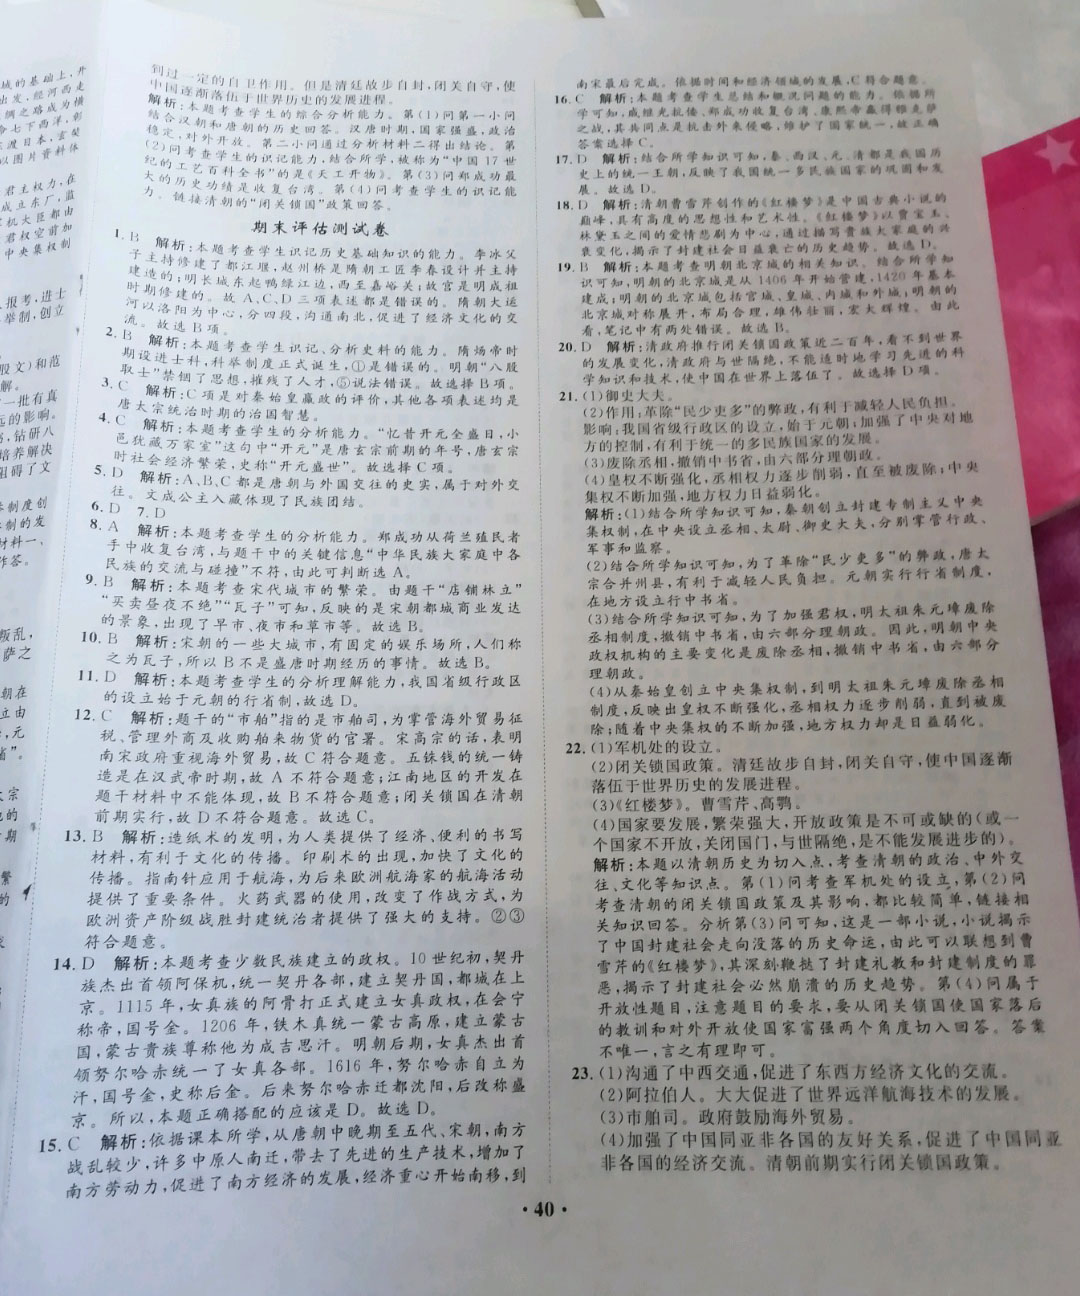 城的基础上,开
出发,经河西走
到过一定的自卫作用。但是清廷故步自封,闭关自守,使
中国逐渐落伍于世界历史的发展进程。
解析:本题考查学生的综合分析能力。第(1)问第一小问
结合汉朝和唐朝的历史回答。汉唐时期,国家强盛,政治
稳定,对外开放。第二小问通过分析材料二得出结论。第
(2)问考查学生的识记能力,结合所学,被称为“中国17世
纪的工艺百科全书”的是《天工开物》。第(3)问郑成功最
大的历史功绩是收复台湾。第(4)问考查学生的识记能
力,链接清朝的“闭关锁国”政策回答。
期末评估测试卷
1. B 解析:本题考查学生识记历史基础知识的能力。李冰父
子主持修建了都江堰,赵州桥是隋朝工匠李春设计并主持
建造的;明长城东起鸭绿江边,西至嘉峪关;故宫是明成祖
时期修建的。故A、C、D三项表述都是错误的。隋朝大运
河以洛阳为中心,分四段,沟通南北,促进了经济文化的交
流。故选B项。
2. B 解析:本题考查学生识记、分析史料的能力。隋炀帝时
期设进士科,科举制度正式诞生,①是错误的。明朝“八股
取士”禁锢了思想,摧残了人才,⑤说法错误。故选择B项。
3. C 解析:C项是对秦始皇嬴政的评价,其他各项表述均是
唐太宗统治时期的治国智慧。
4. C 解析:本题考查学生的分析能力。“忆昔开元全盛日,小
邑犹藏万家室”这句中“开元”是唐玄宗前期的年号,唐玄宗
时社会经济繁荣,史称“开元盛世”。故选择C项。
5. D 解析:A、B、C都是唐朝与外国交往的史实,属于对外交
往。文成公主入藏体现了民族团结。
6. D 7. D
8. A 解析:本题考查学生的分析能力。郑成功从荷兰殖民者
手中收复台湾,与题干中的关键信息“中华民族大家庭中各
民族的交流与碰撞”不符,由此可判断选A。
9. B 解析:本题考查宋代城市的繁荣。由题干“店铺林立”
“买卖昼夜不绝”“瓦子”可知,反映的是宋朝都城商业发达
的景象,出现了早市、夜市和草市等。故选B。
10. B 解析:宋朝的一些大城市,有固定的娱乐场所,人们称
之为瓦子,所以B不是盛唐时期经历的事情。故选B。
11. D 解析:本题考查学生的分析理解能力,我国省级行政区
的设立始于元朝的行省制,故选D。
12. C 解析:题干的“市舶”指的是市舶司,为掌管海外贸易征
税、管理外商及收购舶来物货的官署。宋高宗的话,表明
南宋政府重视海外贸易,故C符合题意。五铢钱的统一铸
造是在汉武帝时期,故A不符合题意;江南地区的开发在
题干材料中不能体现,故B不符合题意;闭关锁国在清朝
前期实行,故D不符合题意。故选C。
13. B 解析:造纸术的发明,为人类提供了经济、便利的书写
材料,有利于文化的传播。印刷术的出现,加快了文化的
传播。指南针应用于航海,为后来欧洲航海家的航海活动
提供了重要条件。火药武器的使用,改变了作战方式,为
欧洲资产阶级战胜封建统治者提供了强大的支持。②③
符合题意。
14. D 解析:本题考查少数民族建立的政权。10世纪初,契丹
族杰出首领阿保机,统一契丹各部,建立契丹国,都城在上
京。1115年,女真族的阿骨打正式建立女真政权,在会宁
称帝,国号金。1206年,铁木真统一蒙古高原,建立蒙古
国,蒙古贵族尊称他为成吉思汗。明朝后期,女真杰出首
领努尔哈赤统一了女真各部。1616年,努尔哈赤自立为
汗,国号金,史称后金。后来努尔哈赤迁都沈阳,后改称盛
京。所以,本题正确搭配的应该是D。故选D。
15. C 解析:依据课本所学,从唐朝中晚期至五代、宋朝,南方
战乱较少,许多中原人南迁,带去了先进的生产技术,增加了
南方劳动力,促进了南方经济的发展,经济重心开始南移,到
南宋最后完成。依据时间和经济领域的发展,C符合题意。
16. C 解析:本题考查学生总结和概况问题的能力。依据所
学可知,戚继光抗倭、郑成功收复台湾、康熙帝赢得雅克萨
之战,其共同点是抗击外来侵略,维护了国家统一,故正确
答案选择C。
17. D 解析:结合所学知识可知,秦、西汉、元、清都是我国历
史上的统一王朝,反映了我国统一多民族国家的巩固和发
展。故选D。
18. D 解析:清朝曹雪芹创作的《红楼梦》是中国古典小说的
巅峰,具有高度的思想性和艺术性。《红楼梦》以贾宝玉、
林黛玉之间的爱情悲剧为中心,通过描写贵族大家庭的兴
衰变化,揭示了封建社会日益衰亡的历史趋势。故选D。
19. B 解析:本题考查明朝北京城的相关知识。结合所学知
识可知,明朝的北京城是从1406年开始营建,1420年基本
建成;明朝的北京城包括宫城、皇城、内城和外城;明朝的
北京城对称展开,布局合理,雄伟壮丽,宏大辉煌。由此
看,笔记中有两处错误。故选B。
20. D 解析:清政府推行闭关锁国政策近二百年,看不到世界
的发展变化,清政府与世隔绝,不能适时地学习先进的科
学知识和技术,使中国在世界上落伍了。故选择D项。
21. (1)御史大夫。
(2)作用:革除“民少吏多”的弊政,有利于减轻人民负担。
影响:我国省级行政区的设立,始于元朝;加强了中央对地
方的控制,有利于统一的多民族国家的发展。
(3)废除丞相,撤销中书省,由六部分理朝政。
(4)皇权不断强化,丞相权力逐步削弱,直至被废除;中央
集权不断加强,地方权力日益弱化。
解析:(1)结合所学知识可知,秦朝创立封建专制主义中央
集权制,在中央设立丞相、太尉、御史大夫,分别掌管行政、
军事和监察。
(2)结合所学知识可知,为了革除“民少吏多”的弊政,唐太
宗合并州县,有利于减轻人民负担。元朝实行行省制度,
在地方设立行中书省。
(3)结合所学知识可知,为了加强君权,明太祖朱元璋废除
丞相制度,撤销中书省,由六部分理朝政。因此,明朝中央
政权机构的主要变化是废除丞相,撤销中书省,由六部分
理朝政。
(4)从秦始皇创立中央集权制,到明太祖朱元璋废除丞相
制度,反映出皇权不断强化,丞相权力逐步削弱,直到被废
除;随着中央集权的不断加强,地方权力却是日益弱化。
22. (1)军机处的设立。
(2)闭关锁国政策。清廷故步自封,闭关自守,使中国逐渐
落伍于世界历史的发展进程。
(3)《红楼梦》。曹雪芹、高鹗。
(4)国家要发展,繁荣强大,开放政策是不可或缺的(或一
个国家不开放,关闭国门,与世隔绝,是不能发展进步的)。
解析:本题以清朝历史为切入点,考查清朝的政治、中外交
往、文化等知识点。第(1)问考查军机处的设立,第(2)问
考查清朝的闭关锁国政策及其影响,都比较简单,链接相
关知识回答。分析第(3)问可知,这是一部小说,小说揭示
了中国封建社会走向没落的历史命运,由此可以联想到曹
雪芹的《红楼梦》,其深刻鞭挞了封建礼教和封建制度的罪
恶,揭示了封建社会必然崩溃的历史趋势。第(4)问属于
开放性题目,注意题目的要求,要从闭关锁国使国家落后
的教训和对外开放使国家富强两个角度切入回答。答案
不唯一,言之有理即可。
23. (1)沟通了中西交通,促进了东西方经济文化的交流。
(2)阿拉伯人。大大促进了世界远洋航海技术的发展。
(3)市舶司。政府鼓励海外贸易。
(4)加强了中国同亚非各国的友好关系,促进了中国同亚
非各国的经济交流。清朝前期实行闭关锁国政策。
·40·